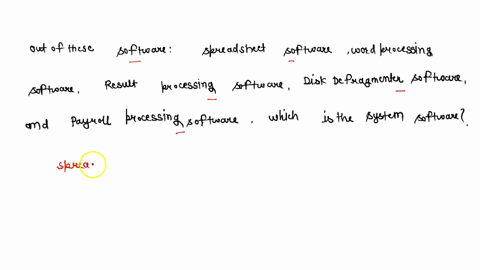 out of these software: spreadsheet software, word processing
software, Result processing software, Disk Defragmenter software,
and Payroll processing software. which is the system software?
sprea